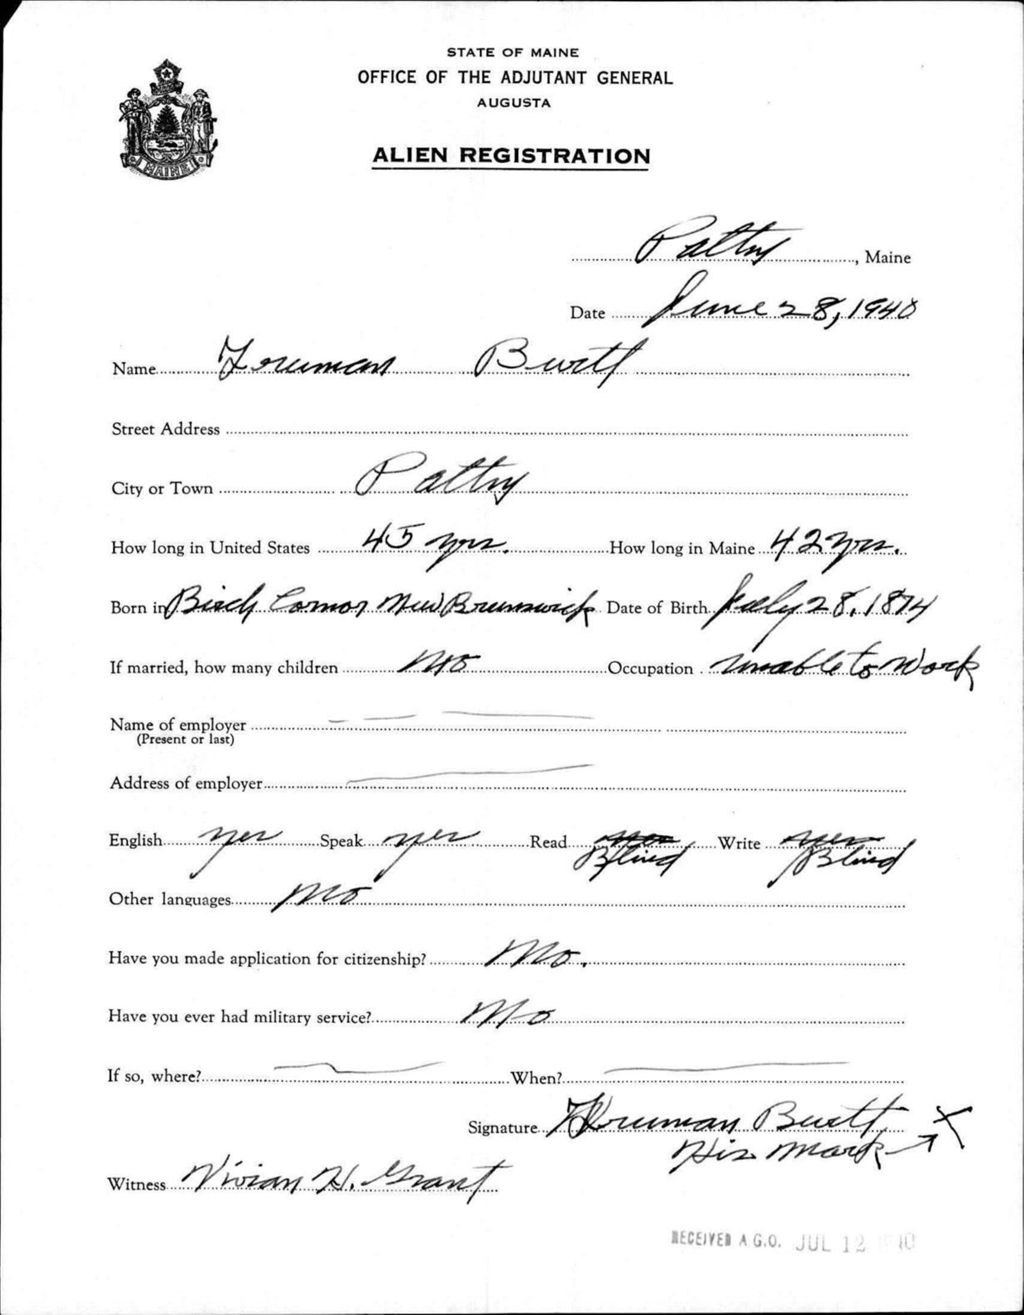 STATE OF MAINE
OFFICE OF THE ADJUTANT GENERAL
AUGUSTA
ALIEN REGISTRATION
MAINE
Patten, Maine
Date June 28, 1940
Name Freuman Burtt
Street Address
City or Town Patten
How long in United States 45 yrs. How long in Maine 42 yrs.
Born in Birch Cornor New Brunswick Date of Birth July 28, 1874
If married, how many children No Occupation Unable to Work
Name of employer
(Present or last)
Address of employer
English yes Speak yes Read Blind Write Blind
Other languages No
Have you made application for citizenship? No.
Have you ever had military service? No
If so, where? When?
Signature Freuman Burtt X
His Mark
Witness Vivian H. Grant
RECEIVED A.G.O. JUL 12 1940